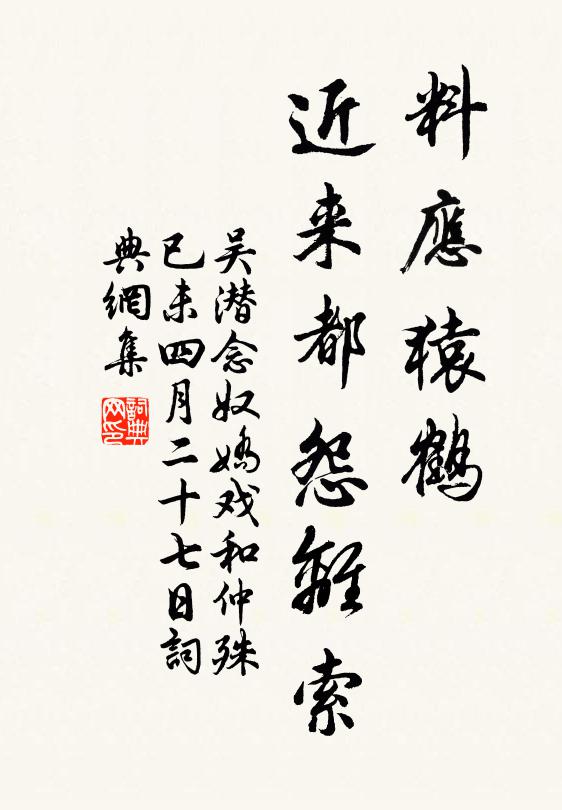 料應猿鶴
近来都怨離索
吴潜念奴嬌戏和仲殊
已未四月二十七日詞
典網集
詞典网印